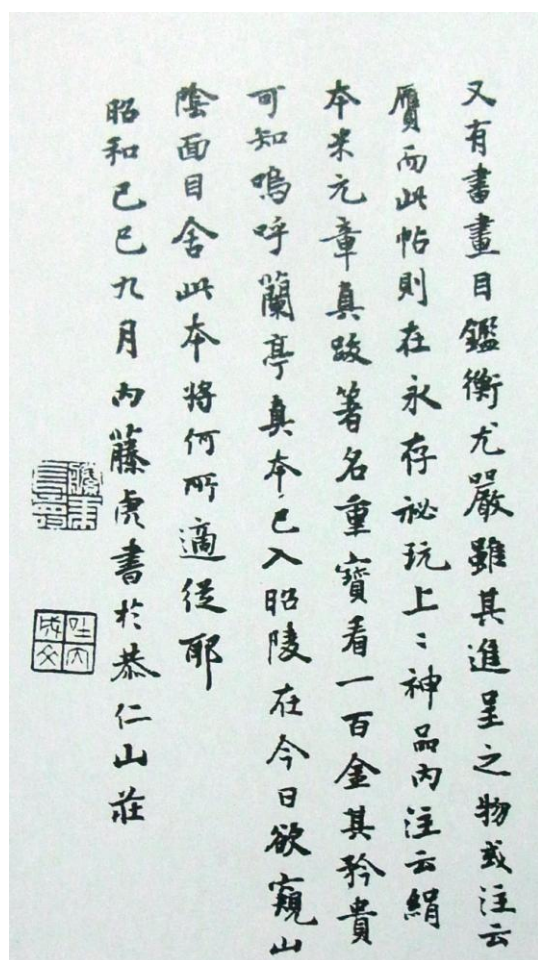 又有書畫目鑑衡尤嚴雖其進呈之物或注云
贗而此帖則在永存祕玩上〻神品內注云絹
本米元章真跋著名重寶看一百金其矜貴
可知嗚呼蘭亭真本已入昭陵在今日欲窺山
陰面目舍此本將何所適從耶
昭和己巳九月內藤虎書於恭仁山莊